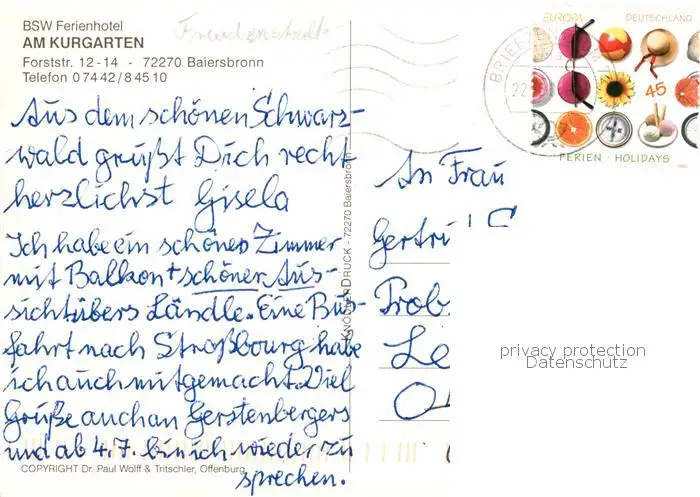 BSW Ferienhotel
AM KURGARTEN
Forststr. 12-14 - 72270 Baiersbronn
Telefon 0 74 42 / 8 45 10
Freudenstadt
Aus dem schönen Schwarz-
wald grüßt Dich recht
herzlichst Gisela
Ich habe ein schönes Zimmer
mit Balkon + schöner Aus-
sicht übers Ländle. Eine Bus-
fahrt nach Straßbourg habe
ich auch mitgemacht. Viel
Grüße auch an Gerstenbergers
und ab 4.7. bin ich wieder zu
sprechen.
COPYRIGHT Dr. Paul Wolff & Tritschler, Offenburg
DRUCK - 72270 Baiersbronn
EUROPA DEUTSCHLAND
45
FERIEN · HOLIDAYS
An Frau
Gertru
Prob
Le
privacy protection
Datenschutz